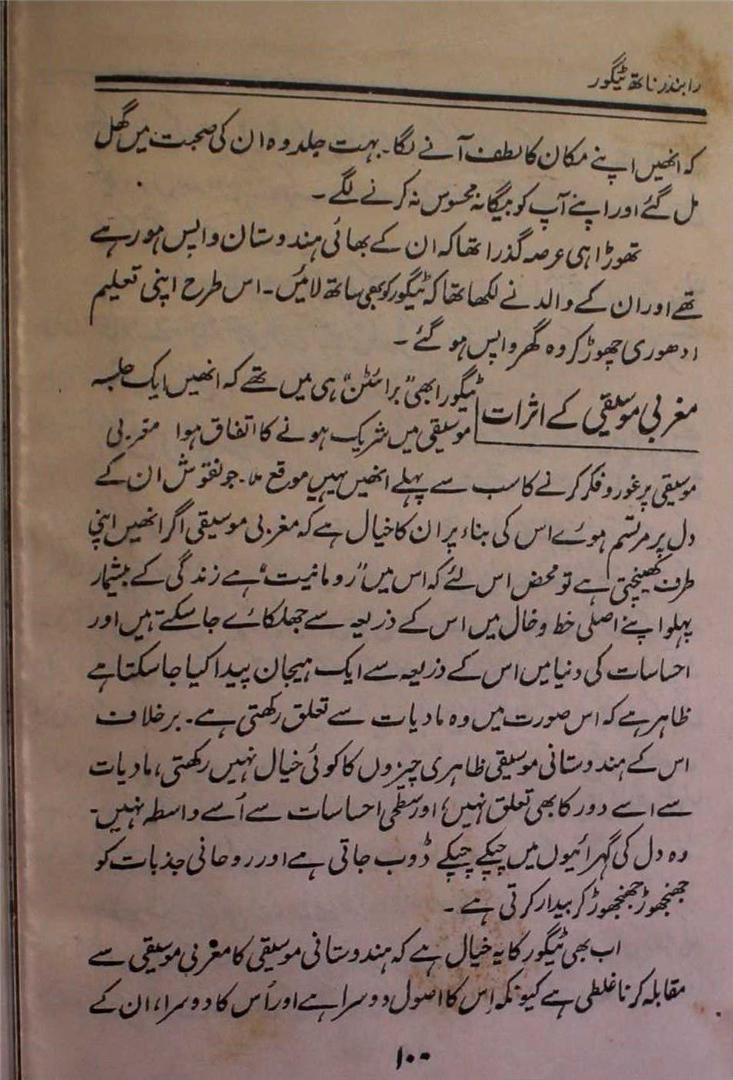 رابندر ناتھ ٹیگور
کہ انھیں اپنے مکان کا لطف آنے لگا۔ بہت جلد وہ ان کی صحبت میں گھل
مل گئے اور اپنے آپ کو بیگانہ محسوس نہ کرنے لگے۔
تھوڑا ہی عرصہ گذرا تھا کہ ان کے بھائی ہندوستان واپس ہو رہے
تھے اور ان کے والد نے لکھا تھا کہ ٹیگور کو بھی ساتھ لائیں۔ اس طرح اپنی تعلیم
ادھوری چھوڑ کر وہ گھر واپس ہو گئے۔
مغربی موسیقی کے اثرات
ٹیگور ابھی "برائٹن" ہی میں تھے کہ انھیں ایک جلسہ
موسیقی میں شریک ہونے کا اتفاق ہوا مغربی
موسیقی پر غور و فکر کرنے کا سب سے پہلے انھیں یہیں موقع ملا۔ جو نقوش ان کے
دل پر مرتسم ہوئے اس کی بناء پر ان کا خیال ہے کہ مغربی موسیقی اگر انھیں اپنی
طرف کھینچتی ہے تو محض اس لئے کہ اس میں "رومانیت" ہے زندگی کے بیشمار
پہلو اپنے اصلی خط و خال میں اس کے ذریعہ سے جھلکائے جا سکتے ہیں اور
احساسات کی دنیا میں اس کے ذریعہ سے ایک ہیجان پیدا کیا جا سکتا ہے
ظاہر ہے کہ اس صورت میں وہ مادیات سے تعلق رکھتی ہے۔ برخلاف
اس کے ہندوستانی موسیقی ظاہری چیزوں کا کوئی خیال نہیں رکھتی، مادیات
سے اسے دور کا بھی تعلق نہیں، اور سطحی احساسات سے اُسے واسطہ نہیں۔
وہ دل کی گہرائیوں میں چپکے چپکے ڈوب جاتی ہے اور روحانی جذبات کو
جھنجھوڑ جھنجھوڑ کر بیدار کرتی ہے۔
اب بھی ٹیگور کا یہ خیال ہے کہ ہندوستانی موسیقی کا مغربی موسیقی سے
مقابلہ کرنا غلطی ہے کیونکہ اِس کا اصول دوسرا ہے اور اُس کا دوسرا، ان کے
۱۰۰